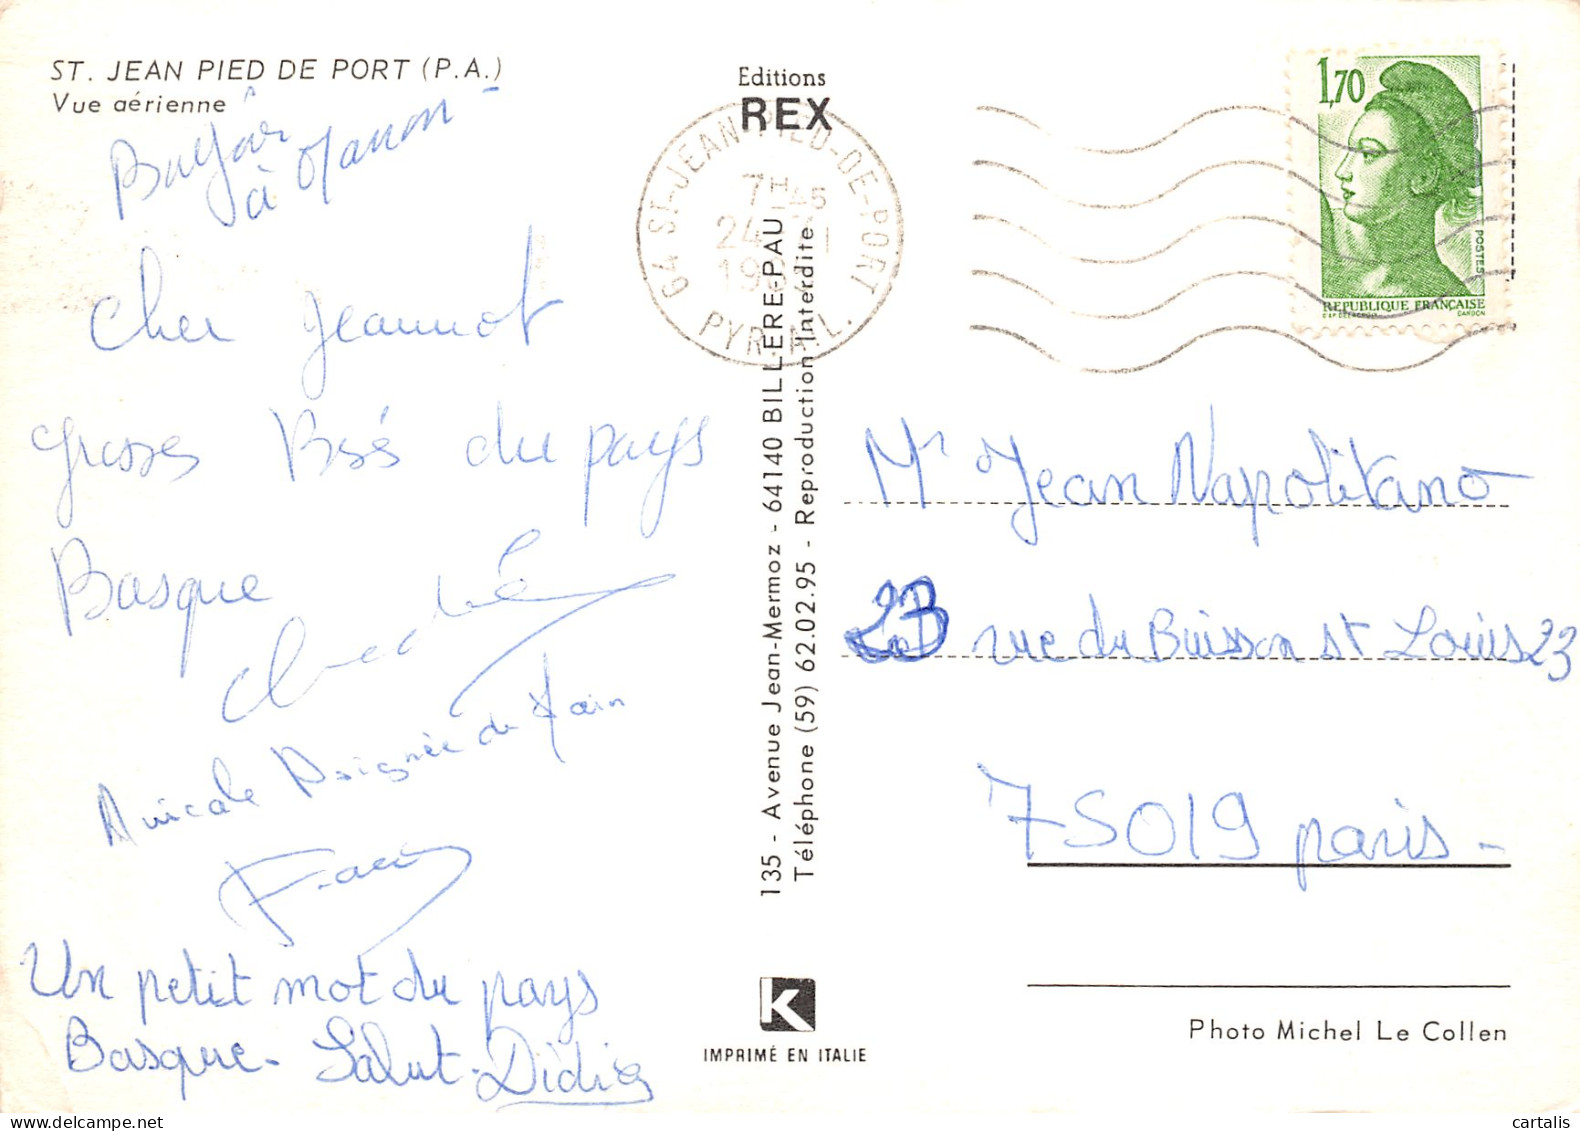 ST. JEAN PIED DE PORT (P.A.)
Vue aérienne
à Manon
Cher Jeannot
grosses Bisés du pays
Basque
Amicale Poignée de
Un petit mot du pays
Basque. Salut. Didier
Editions
REX
64 ST-JEAN-PIED-DE-PORT
7H45
24
PYR. ATL.
135 - Avenue Jean-Mermoz - 64140 BILLERE-PAU
Téléphone (59) 62.02.95 - Reproduction Interdite
K
IMPRIMÉ EN ITALIE
1,70
POSTES
REPUBLIQUE FRANÇAISE
D'AP DELACROIX GANDON
Mr Jean Napolitano
23 rue du Buisson st Louis 23
75019 paris -
Photo Michel Le Collen
cartalis